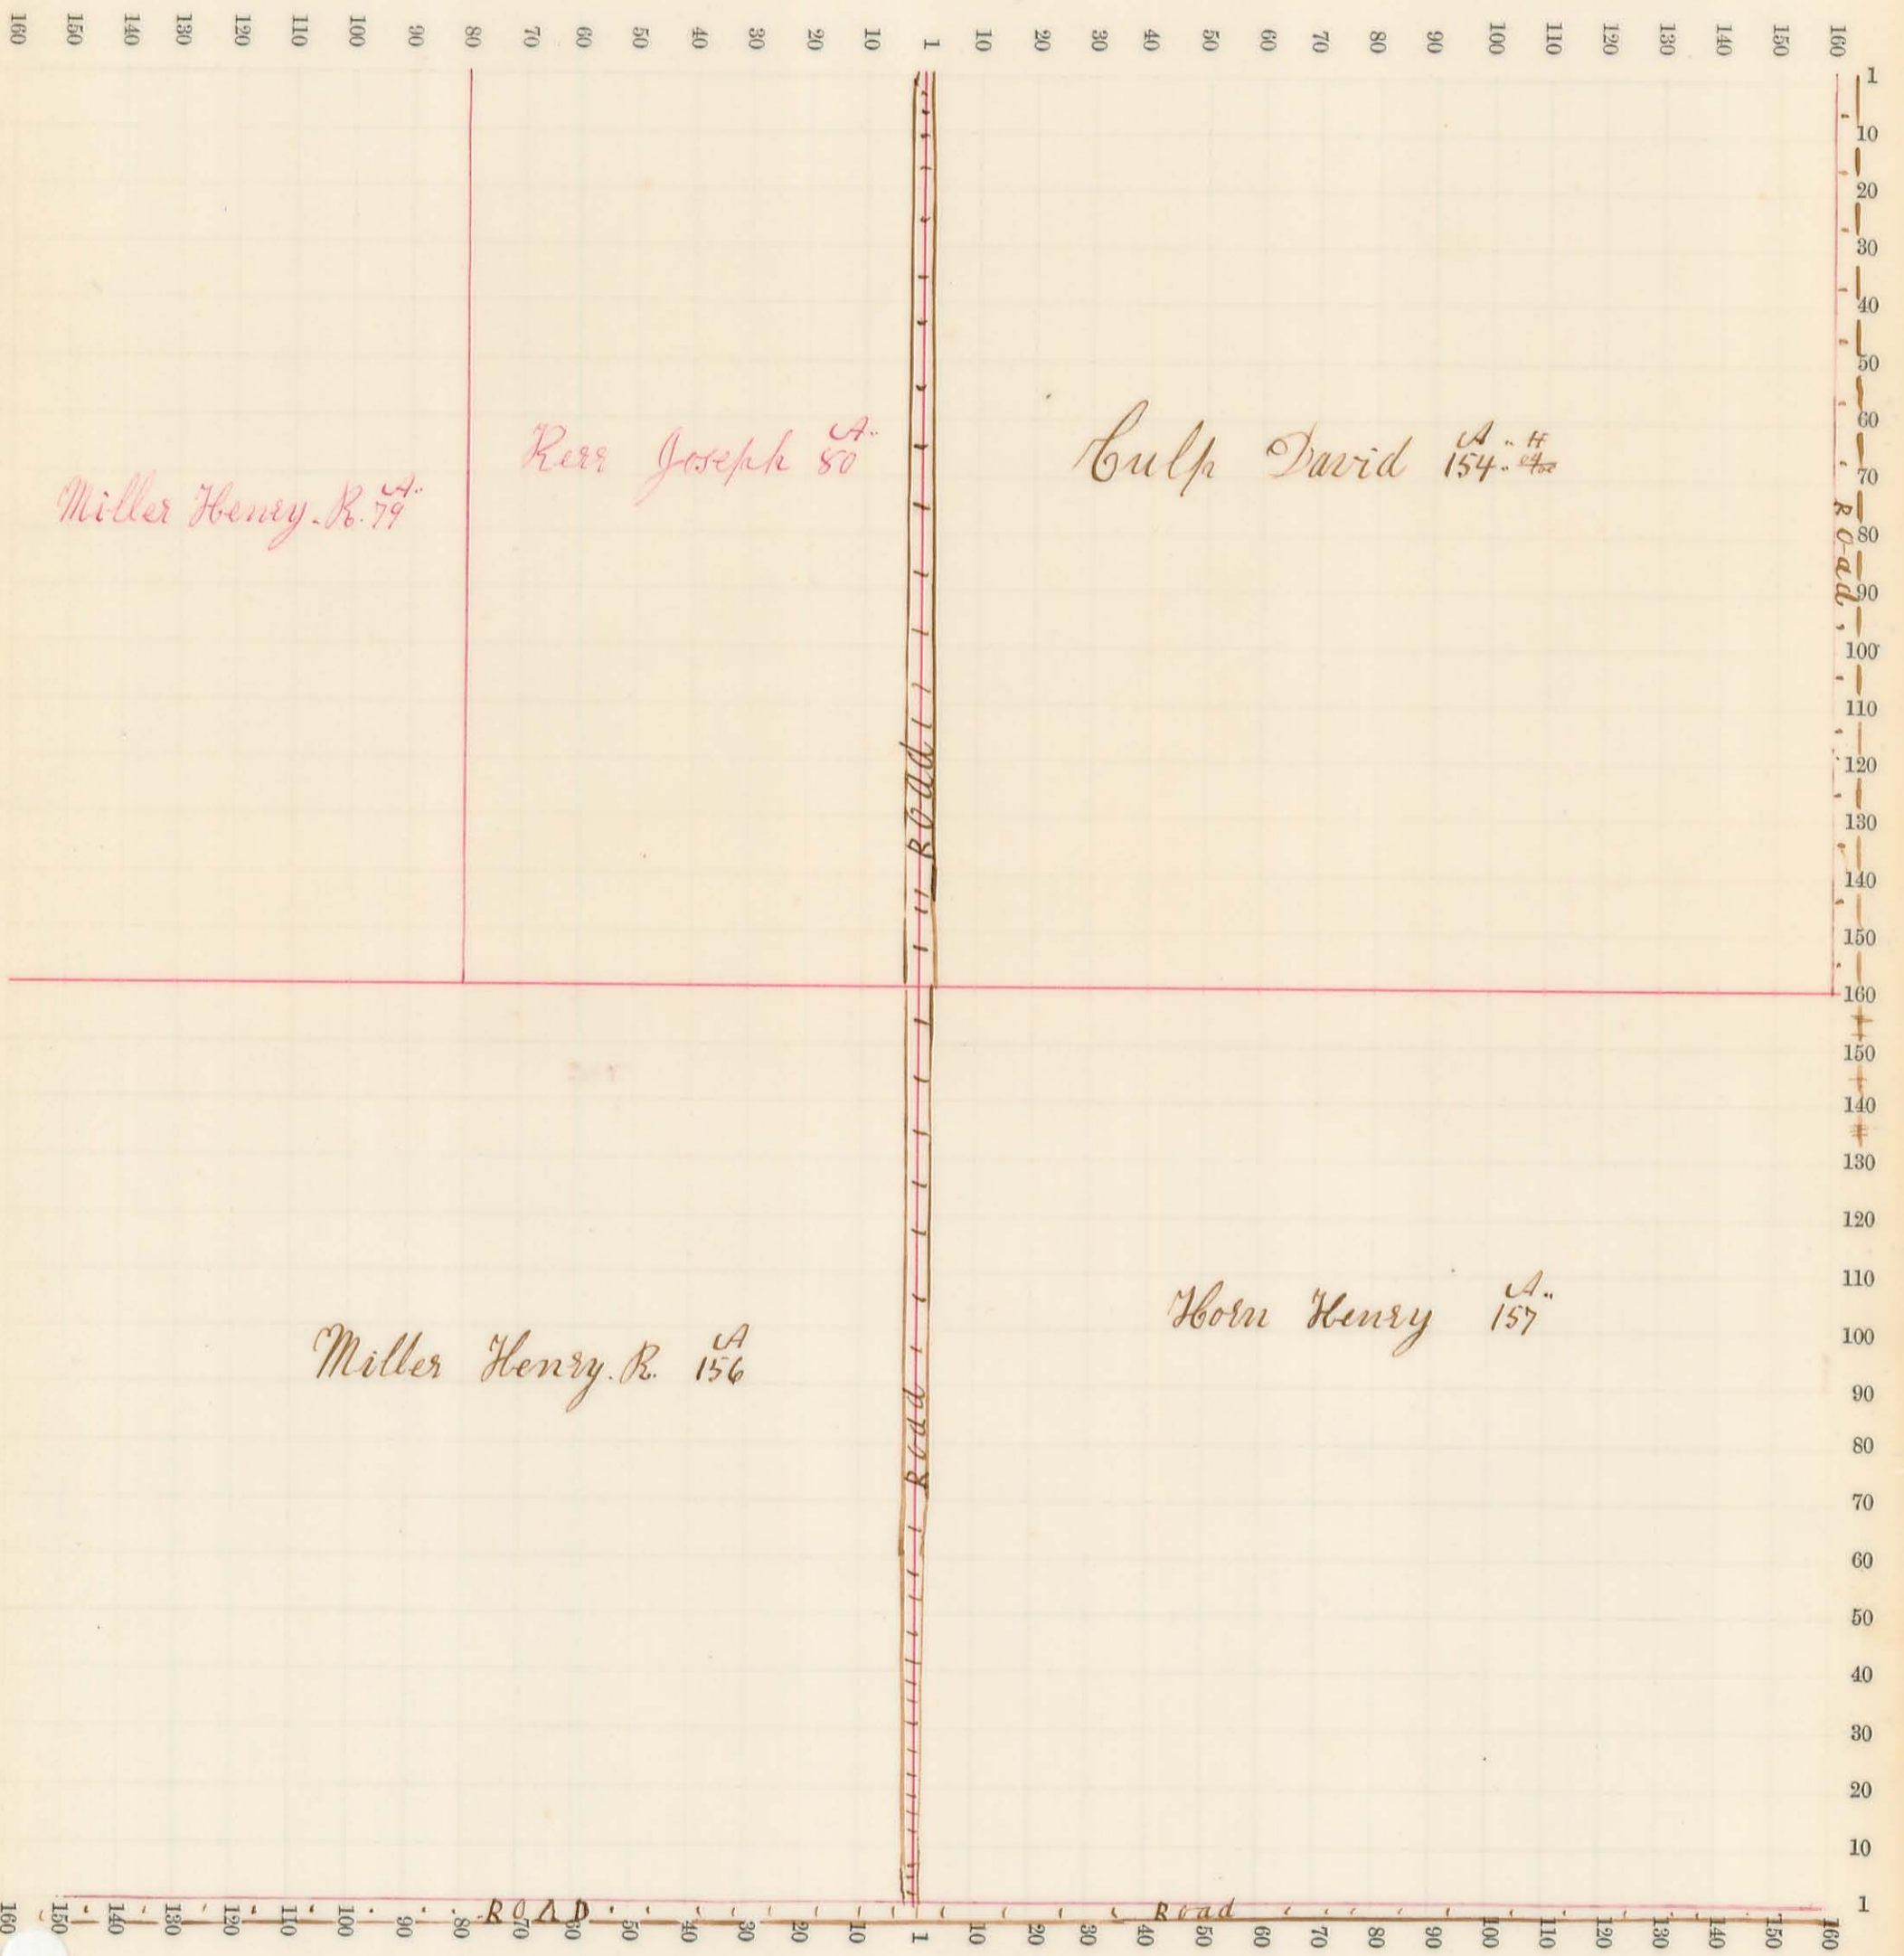 160 150 140 130 120 110 100 90 80 70 60 50 40 30 20 10 1 10 20 30 40 50 60 70 80 90 100 110 120 130 140 150 160
1
10
20
30
40
50
60
70
80
90
100
110
120
130
140
150
160
150
140
130
120
110
100
90
80
70
60
50
40
30
20
10
1
Road
A..
Kerr Joseph 80
A..
Culp David 154.
A..
Miller Henry. R. 79
Road
A..
Horn Henry 157
A
Miller Henry. R. 156
Road
ROAD Road
160 150 140 130 120 110 100 90 80 70 60 50 40 30 20 10 1 10 20 30 40 50 60 70 80 90 100 110 120 130 140 150 160